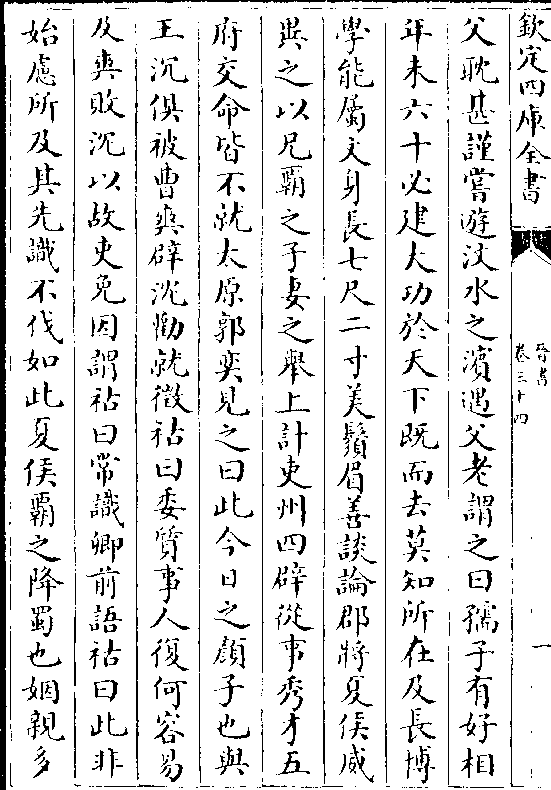 欽定四庫全書
晉書
卷三十四
一
父耽甚謹嘗遊汶水之濱遇父老謂之曰孺子有好相
年未六十必建大功於天下既而去莫知所在及長博
學能屬文身長七尺二寸美鬚眉善談論郡將夏侯威
異之以兄霸之子妻之舉上計吏州四辟從事秀才五
府交命皆不就太原郭奕見之曰此今日之顏子也與
王沉俱被曹爽辟沈勸就徵祜曰委質事人復何容易
及爽敗沉以故吏免因謂祜曰常識卿前語祜曰此非
始慮所及其先識不伐如此夏侯霸之降蜀也姻親多